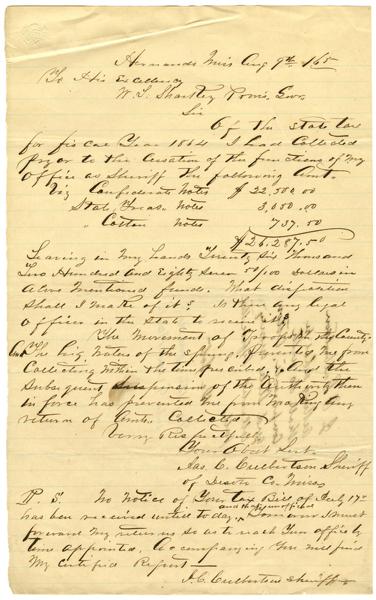 Hernando Miss Aug 9th /65
To His Excellency
W. L. Sharkey Provis. Gov.
Sir
Of the State tax
for fiscal Year 1864 I had Collected
Prior to the Cessation of the functions of my
Office as Sheriff the following Amt.
Viz Confederate Notes $ 22,500.00
State Treas. Notes 3,050.00
" Cotton Notes 737.50
$26,287.50
Leaving in my hands Twenty Six Thousand
Two Hundred And Eighty Seven 50/100 Dollars in
Above Mentioned funds. What disposition
Shall I make of it? Is there any legal
Officer in the State to receive it?
The Movement of Troops in the County
And The big Waters of the Spring, Prevented me from
Collecting within the time prescribed, And the
Subsequent Suspension of the Authority then
in force has prevented me from Making any
return of Amt. Collected
Very Respectfully
Your Obedt Servt.
Jas. C. Culbertson Sheriff
of Desoto Co. Miss
P. S. No Notice of Your tax Bill of July 17th
has been received until to day, and the form of Tomorrow I must
forward My returns so as to reach Your Office by
time appointed. Accompanying You will find
My Certified Report
J. C. Culbertson Sheriff